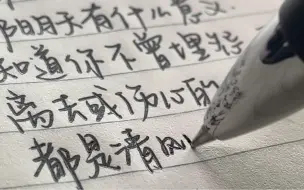 阴阳手有什么意义
知道你不曾埋怨
离去或伤心的
都是清的